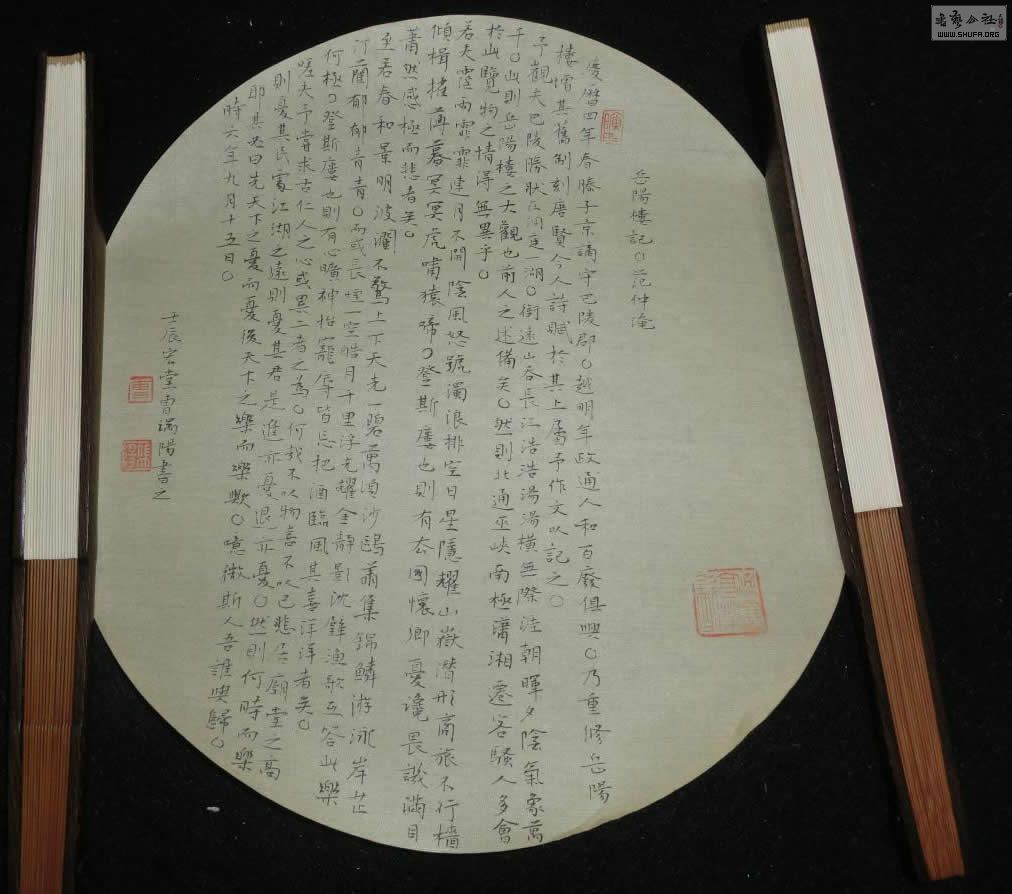 岳陽樓記〇范仲淹
慶曆四年春滕子京謫守巴陵郡〇越明年政通人和百廢俱興〇乃重修岳陽
樓增其舊制刻唐賢今人詩賦於其上屬予作文以記之〇
予觀夫巴陵勝狀在洞庭一湖〇銜遠山吞長江浩浩湯湯橫無際涯朝暉夕陰氣象萬
千〇此則岳陽樓之大觀也前人之述備矣〇然則北通巫峽南極瀟湘遷客騷人多會
於此覽物之情得無異乎〇
若夫霪雨霏霏連月不開陰風怒號濁浪排空日星隱耀山嶽潛形商旅不行檣
傾楫摧薄暮冥冥虎嘯猿啼〇登斯樓也則有去國懷鄉憂讒畏譏滿目
蕭然感極而悲者矣〇
至若春和景明波瀾不驚上下天光一碧萬頃沙鷗翔集錦鱗游泳岸芷
汀蘭郁郁青青〇而或長煙一空皓月千里浮光耀金靜影沈璧漁歌互答此樂
何極〇登斯樓也則有心曠神怡寵辱皆忘把酒臨風其喜洋洋者矣〇
嗟夫予嘗求古仁人之心或異二者之為〇何哉不以物喜不以己悲居廟堂之高
則憂其民處江湖之遠則憂其君是進亦憂退亦憂〇然則何時而樂
耶其必曰先天下之憂而憂後天下之樂而樂歟〇噫微斯人吾誰與歸〇
時六年九月十五日〇
壬辰 堂曹端陽書之
WWW.SHUFA.ORG